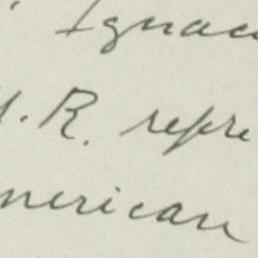 Ignac
R. repre
merican